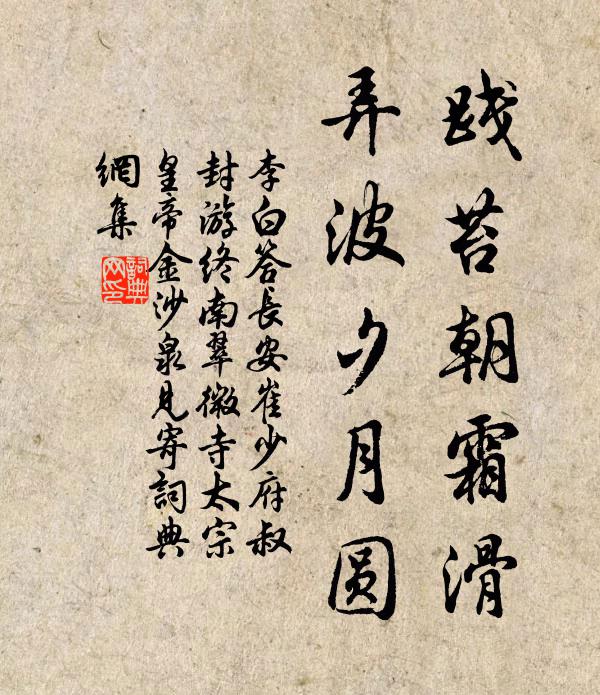 践苔朝霜滑
弄波夕月圆
李白答長安崔少府叔
封游終南翠微寺太宗
皇帝金沙泉見寄詞典
網集
詞典
网印